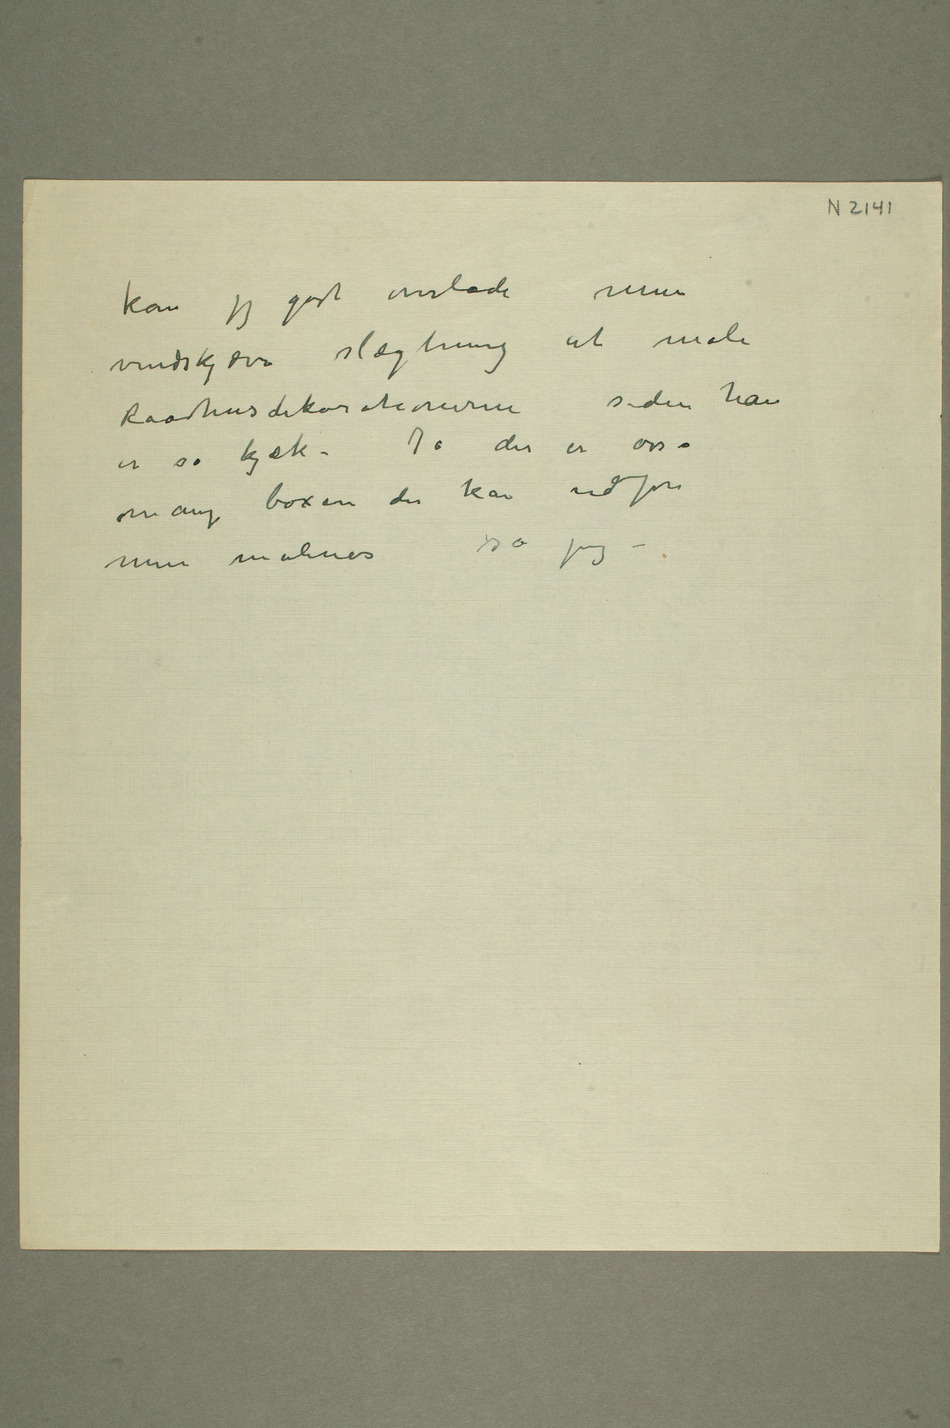 N 2141
kan jeg godt overlade min
vindskjæve slægtning at male
Raadhusdekorationerne siden han
er så kjæk – Ja der er også
mange boxere der kan udføre
min malines sa jeg –